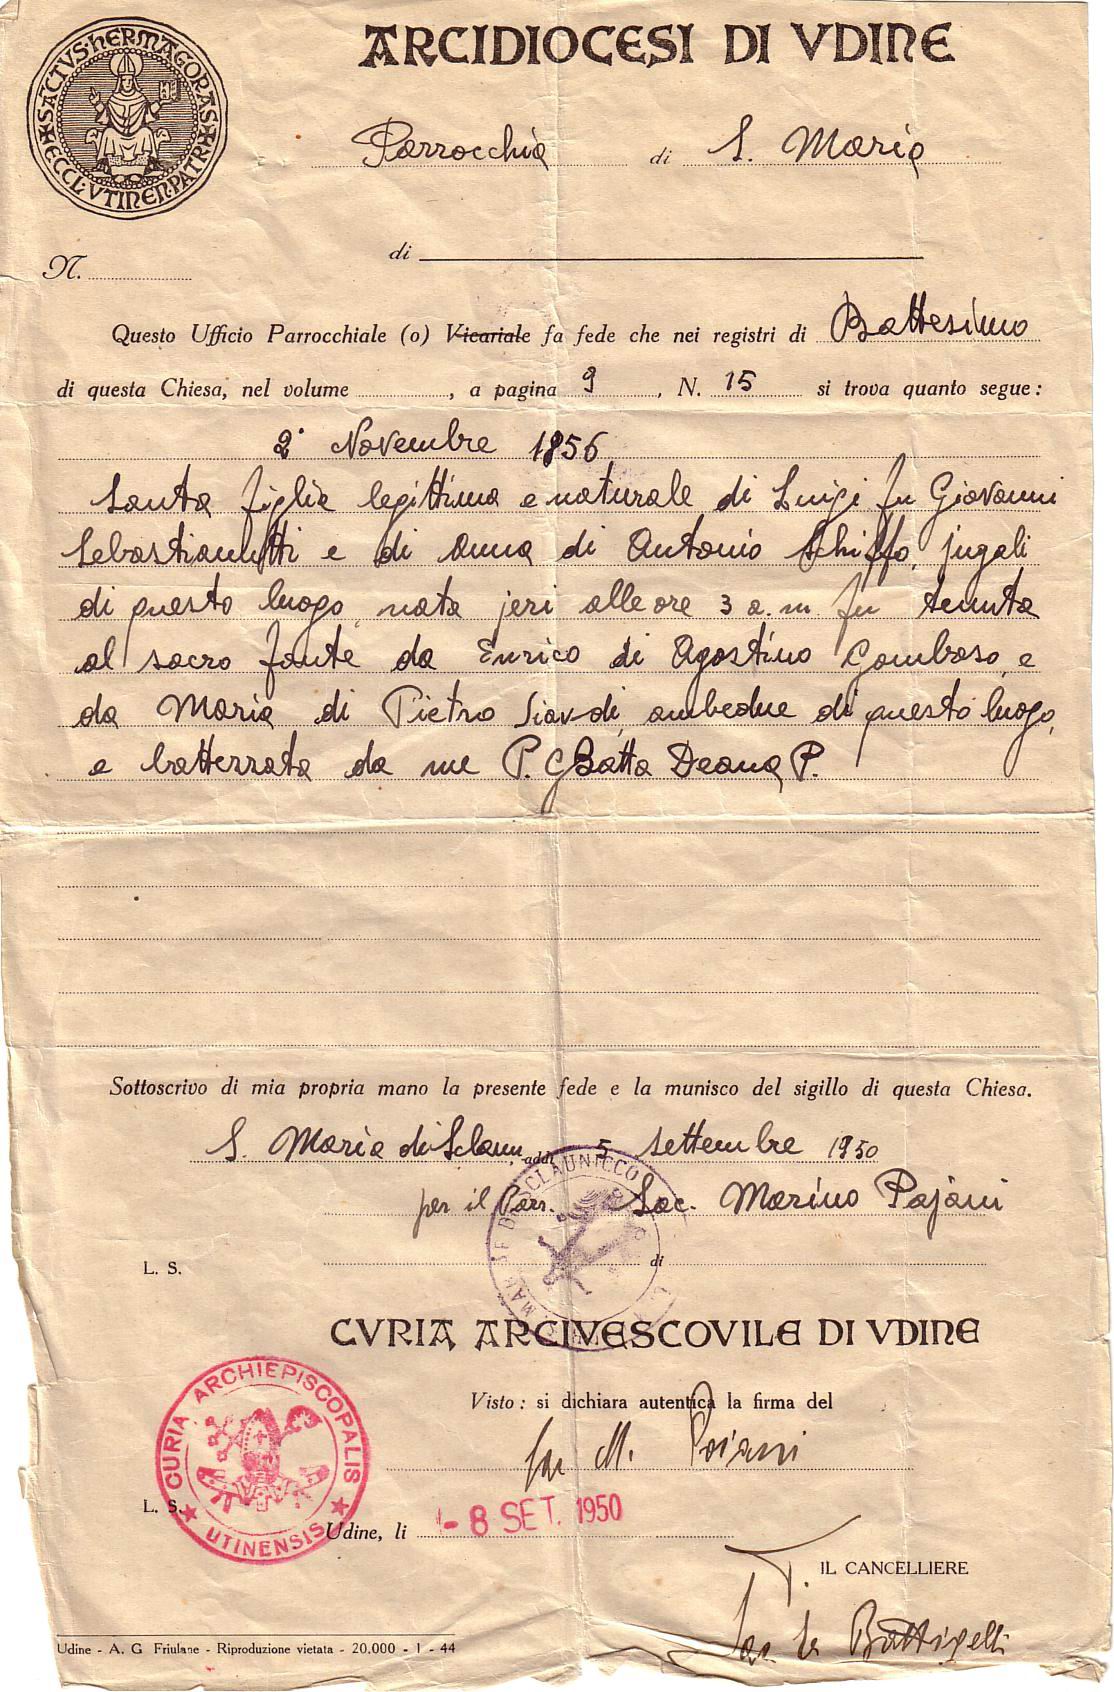 SACTVS·HERMAGORAS
ECCL·VTINEN·PATR
ARCIDIOCESI DI VDINE
Parrocchia di S. Maria
di
N.
Questo Ufficio Parrocchiale (o) Vicariale fa fede che nei registri di Battesimo
di questa Chiesa, nel volume , a pagina 9 , N. 15 si trova quanto segue:
2° Novembre 1856
Santa figlia legittima e naturale di Luigi fu Giovanni
Sebastianutti e di Anna di Antonio Schiffo, jugali
di questo luogo, nata jeri alle ore 3 a.m. fu tenuta
al sacro fonte da Enrico di Agostino Gombroso, e
da Maria di Pietro ambedue di questo luogo,
e battezzata da me P. GBatta Deana P.
Sottoscrivo di mia propria mano la presente fede e la munisco del sigillo di questa Chiesa.
S. Maria di Sclaun. addì 5 settembre 1950
per il Parr. Sac. Marino Pajani
DI SCLAUNICCO
L. S. di
CVRIA ARCIVESCOVILE DI VDINE
Visto: si dichiara autentica la firma del
Sac M. Poiani
CURIA ARCHIEPISCOPALIS
UTINENSIS
L. S.
Udine, li - 8 SET. 1950
IL CANCELLIERE
Battigelli
Udine - A. G Friulane - Riproduzione vietata - 20.000 - 1 - 44